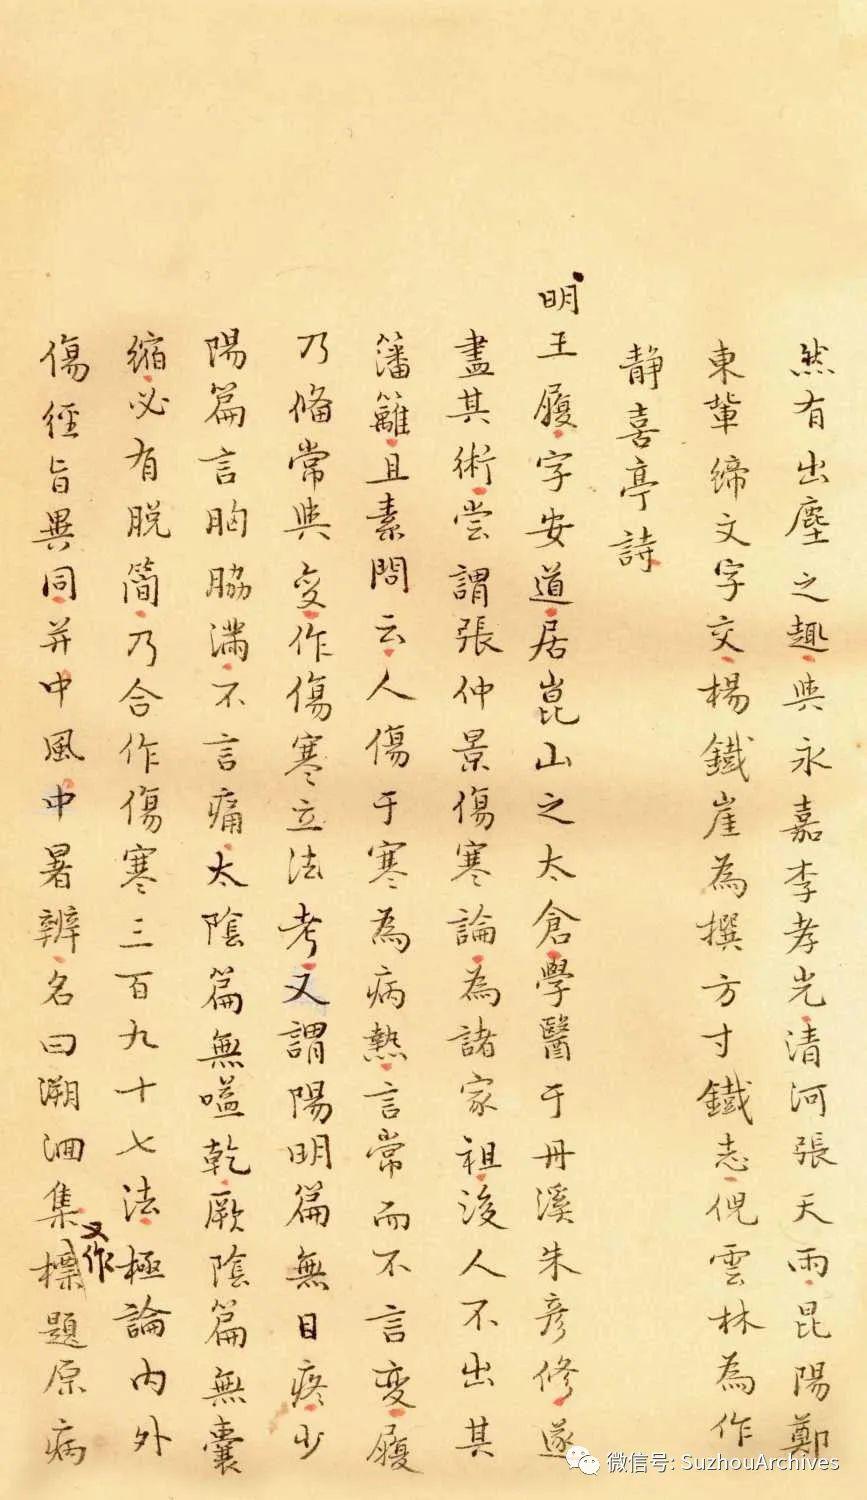 然有出塵之趣與永嘉李孝光清河張天雨昆陽鄭
東輩締文字交楊鐵崖為撰方寸鐵志倪雲林為作
靜喜亭詩
明王履字安道居崑山之太倉學醫于丹溪朱彥修遂
盡其術嘗謂張仲景傷寒論為諸家祖後人不出其
籓籬且素問云人傷于寒為病熱言常而不言變履
乃備常與變作傷寒立法考又謂陽明篇無目疼少
陽篇言胸脇滿不言痛太陰篇無嗌乾厥陰篇無囊
縮必有脫簡乃合作傷寒三百九十七法極論內外
傷經旨異同并中風中暑辨名曰溯洄集又作標題原病
微信号: SuzhouArchives